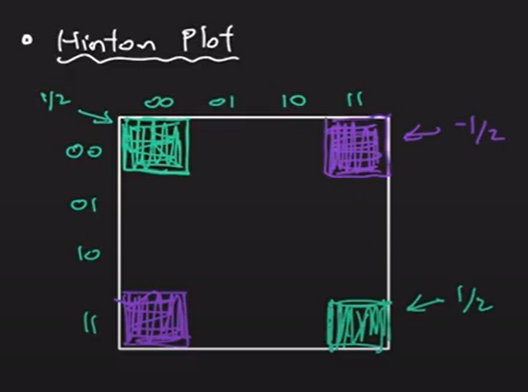 • Hinton Plot
1/2 00 01 10 11
00 -1/2
01
10
11 1/2